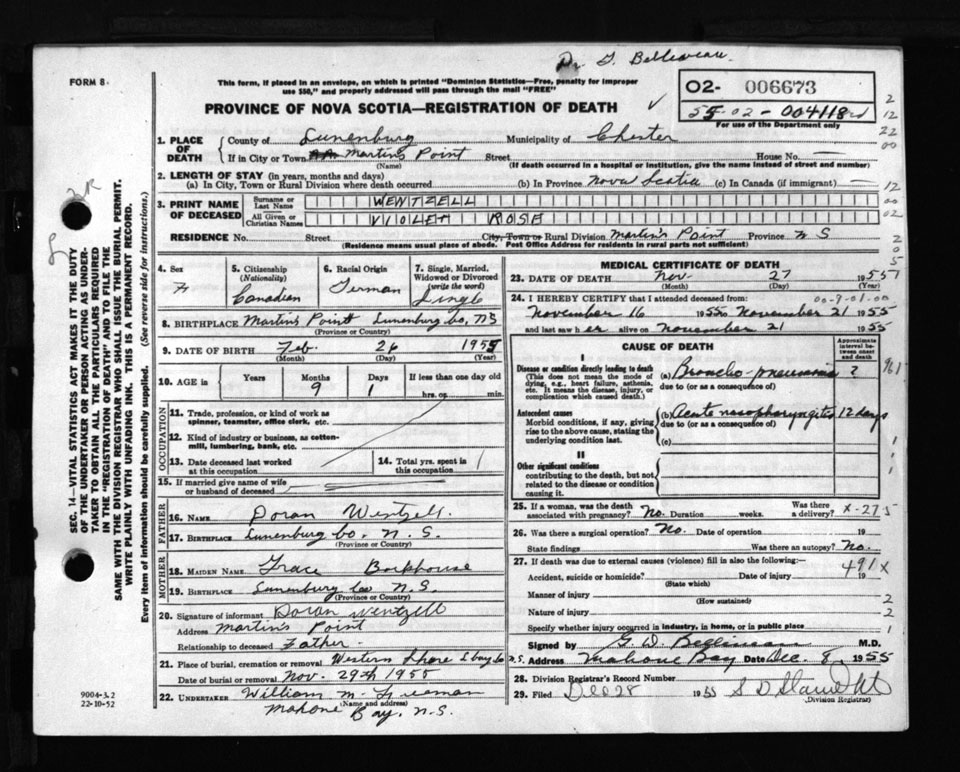 Dr. G. Belliveau.
FORM 8
This form, if placed in an envelope, on which is printed "Dominion Statistics—Free, penalty for improper
use $50," and properly addressed will pass through the mail "FREE"
PROVINCE OF NOVA SCOTIA—REGISTRATION OF DEATH
02- 006673
55-02-004118
For use of the Department only
1. PLACE OF DEATH
County of Lunenburg Municipality of Chester
If in City or Town Martins Point Street House No. —
(Name) (If death occurred in a hospital or institution, give the name instead of street and number)
2. LENGTH OF STAY (in years, months and days)
(a) In City, Town or Rural Division where death occurred (b) In Province Nova Scotia (c) In Canada (if immigrant) —
3. PRINT NAME OF DECEASED
Surname or Last Name WENTZELL
All Given or Christian Names VIOLET ROSE
RESIDENCE No. Street City, Town or Rural Division Martin's Point Province N S
(Residence means usual place of abode. Post Office Address for residents in rural parts not sufficient)
4. Sex F
5. Citizenship (Nationality) Canadian
6. Racial Origin German
7. Single, Married, Widowed or Divorced (write the word) Single
8. BIRTHPLACE Martins Point Lunenburg Co, NS
(Province or Country)
9. DATE OF BIRTH Feb. 26 1955
(Month) (Day) (Year)
10. AGE in Years Months 9 Days 1 If less than one day old hrs. or min.
OCCUPATION
11. Trade, profession, or kind of work as spinner, teamster, office clerk, etc.
12. Kind of industry or business, as cotton-mill, lumbering, bank, etc.
13. Date deceased last worked at this occupation
14. Total yrs. spent in this occupation
15. If married give name of wife or husband of deceased
FATHER
16. NAME Doran Wentzell.
17. BIRTHPLACE Lunenburg Co. N.S.
(Province or Country)
MOTHER
18. MAIDEN NAME Grace Backhouse
19. BIRTHPLACE Lunenburg Co N.S.
(Province or Country)
20. Signature of informant Doran Wentzell
Address Martins Point
Relationship to deceased Father
21. Place of burial, cremation or removal Western Shore
Date of burial or removal Nov. 29th 1955
22. UNDERTAKER William M. Freeman
(Name and address)
Mahone Bay, N.S.
MEDICAL CERTIFICATE OF DEATH
23. DATE OF DEATH Nov 27 1955
(Month) (Day) (Year)
24. I HEREBY CERTIFY that I attended deceased from: 00-9-01-00
November 16 1955 to November 21 1955
and last saw her alive on November 21 1955
CAUSE OF DEATH
Approximate interval between onset and death
I
Disease or condition directly leading to death
(This does not mean the mode of dying, e.g., heart failure, asthenia, etc. It means the disease, injury, or complication which caused death.)
(a) Broncho-pneumonia ?
due to (or as a consequence of)
Antecedent causes
Morbid conditions, if any, giving rise to the above cause, stating the underlying condition last.
(b) Acute nasopharyngitis 12 days
due to (or as a consequence of)
(c)
II
Other significant conditions
contributing to the death, but not related to the disease or condition causing it.
25. If a woman, was the death associated with pregnancy? No. Duration weeks. Was there a delivery?
26. Was there a surgical operation? No. Date of operation 19
State findings Was there an autopsy? No.
27. If death was due to external causes (violence) fill in also the following:— 491x
Accident, suicide or homicide? Date of injury 19
(State which)
Manner of injury
(How sustained)
Nature of injury
Specify whether injury occurred in industry, in home, or in public place
Signed by M.D.
Address Mahone Bay Date Dec. 8, 1955
28. Division Registrar's Record Number
29. Filed Dec 28 1955
(Division Registrar)
SEC. 14—VITAL STATISTICS ACT MAKES IT THE DUTY
OF THE UNDERTAKER OR PERSON ACTING AS UNDERTAKER TO OBTAIN ALL THE PARTICULARS REQUIRED
IN THE "REGISTRATION OF DEATH" AND TO FILE THE
SAME WITH THE DIVISION REGISTRAR WHO SHALL ISSUE THE BURIAL PERMIT.
WRITE PLAINLY WITH UNFADING INK. THIS IS A PERMANENT RECORD.
Every item of information should be carefully supplied. (See reverse side for instructions.)
9004-3.2
22-10-52